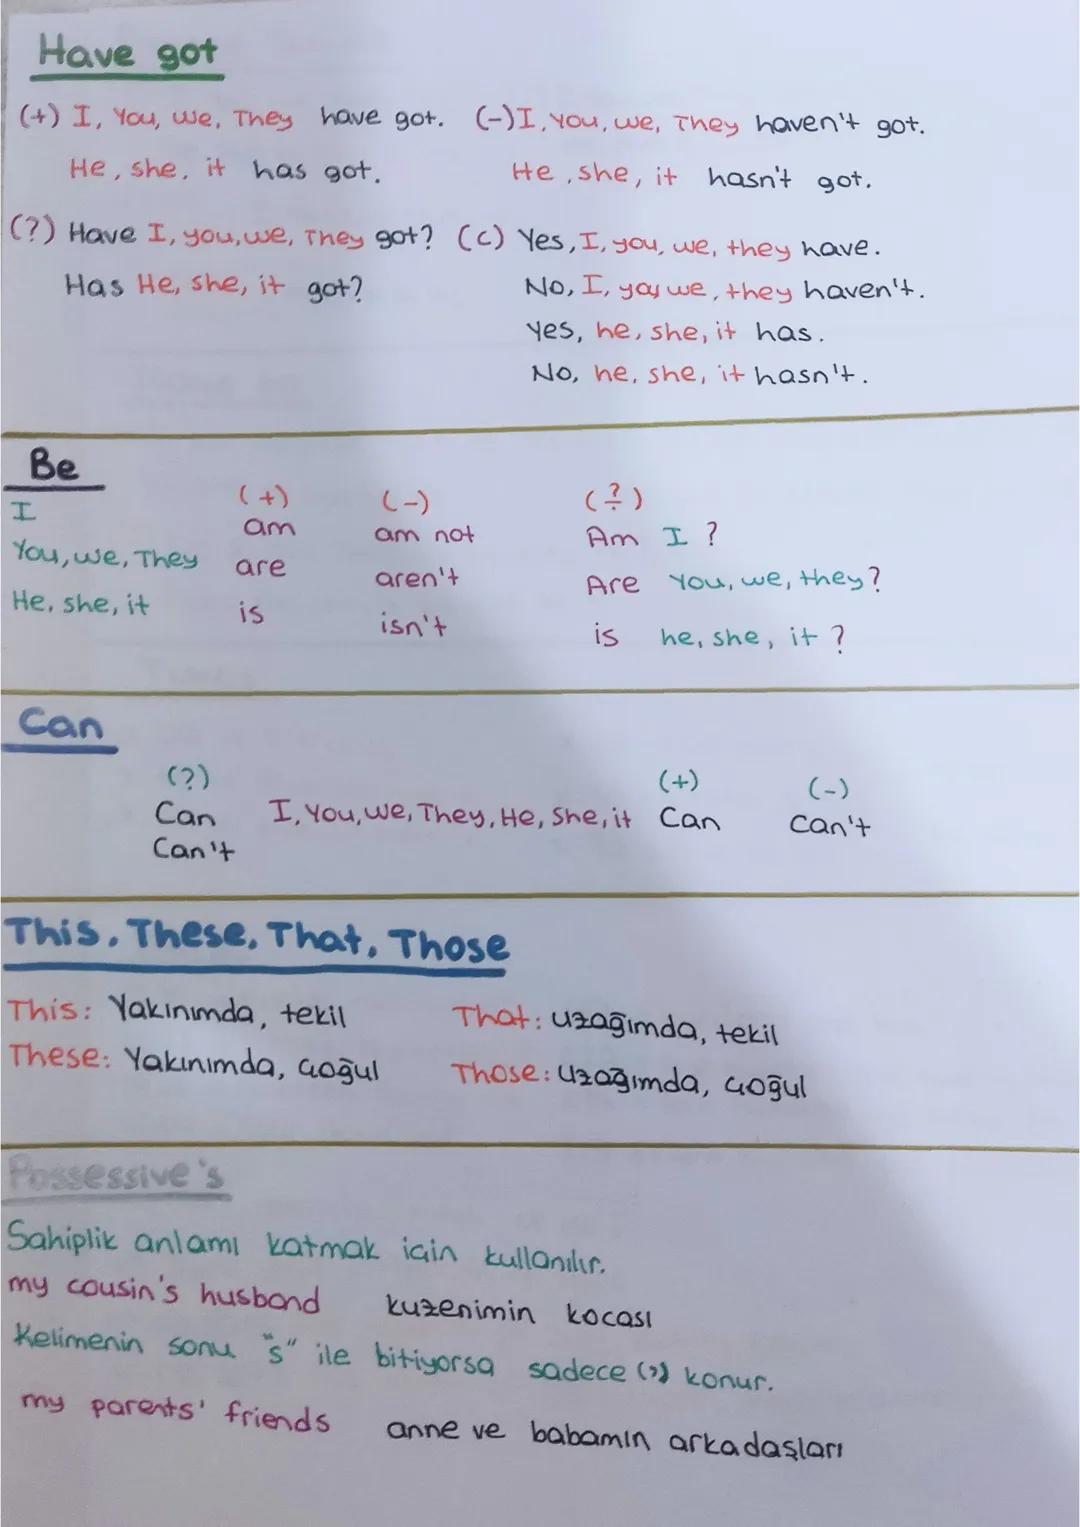 Have got
(+) I, You, we, They have got. (-) I, you, we, They haven't got.
He, she, it has got. He, she, it hasn't got.
(?) Have I, you, we, They got? (c) Yes, I, you, we, they have.
Has He, she, it got? No, I, you, we, they haven't.
Yes, he, she, it has.
No, he, she, it hasn't.
Be
(+) (-) (?)
I am am not Am I ?
You, we, They are aren't Are You, we, they?
He, she, it is isn't is he, she, it ?
Can
(?) (+) (-)
Can I, You, we, They, He, She, it Can Can't
Can't
This, These, That, Those
This: Yakınımda, tekil That: uzağımda, tekil
These: Yakınımda, çoğul Those: uzağımda, çoğul
Possessive 's
Sahiplik anlamı katmak için kullanılır.
my cousin's husband kuzenimin kocası
Kelimenin sonu "s" ile bitiyorsa sadece (') konur.
my parents' friends anne ve babamın arkadaşları